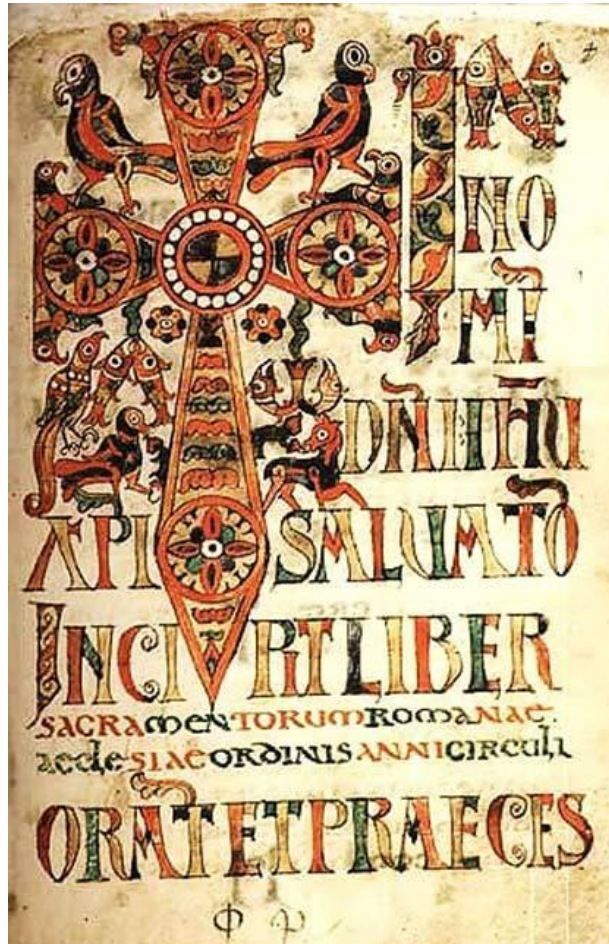 IN
NO
MI
DÑI IHU
XPI SALUATO
INCIPIT LIBER
SACRAMENTORUM ROMANAE.
AECLESIAE ORDINIS ANNI CIRCULI
ORAT ET PRAECES